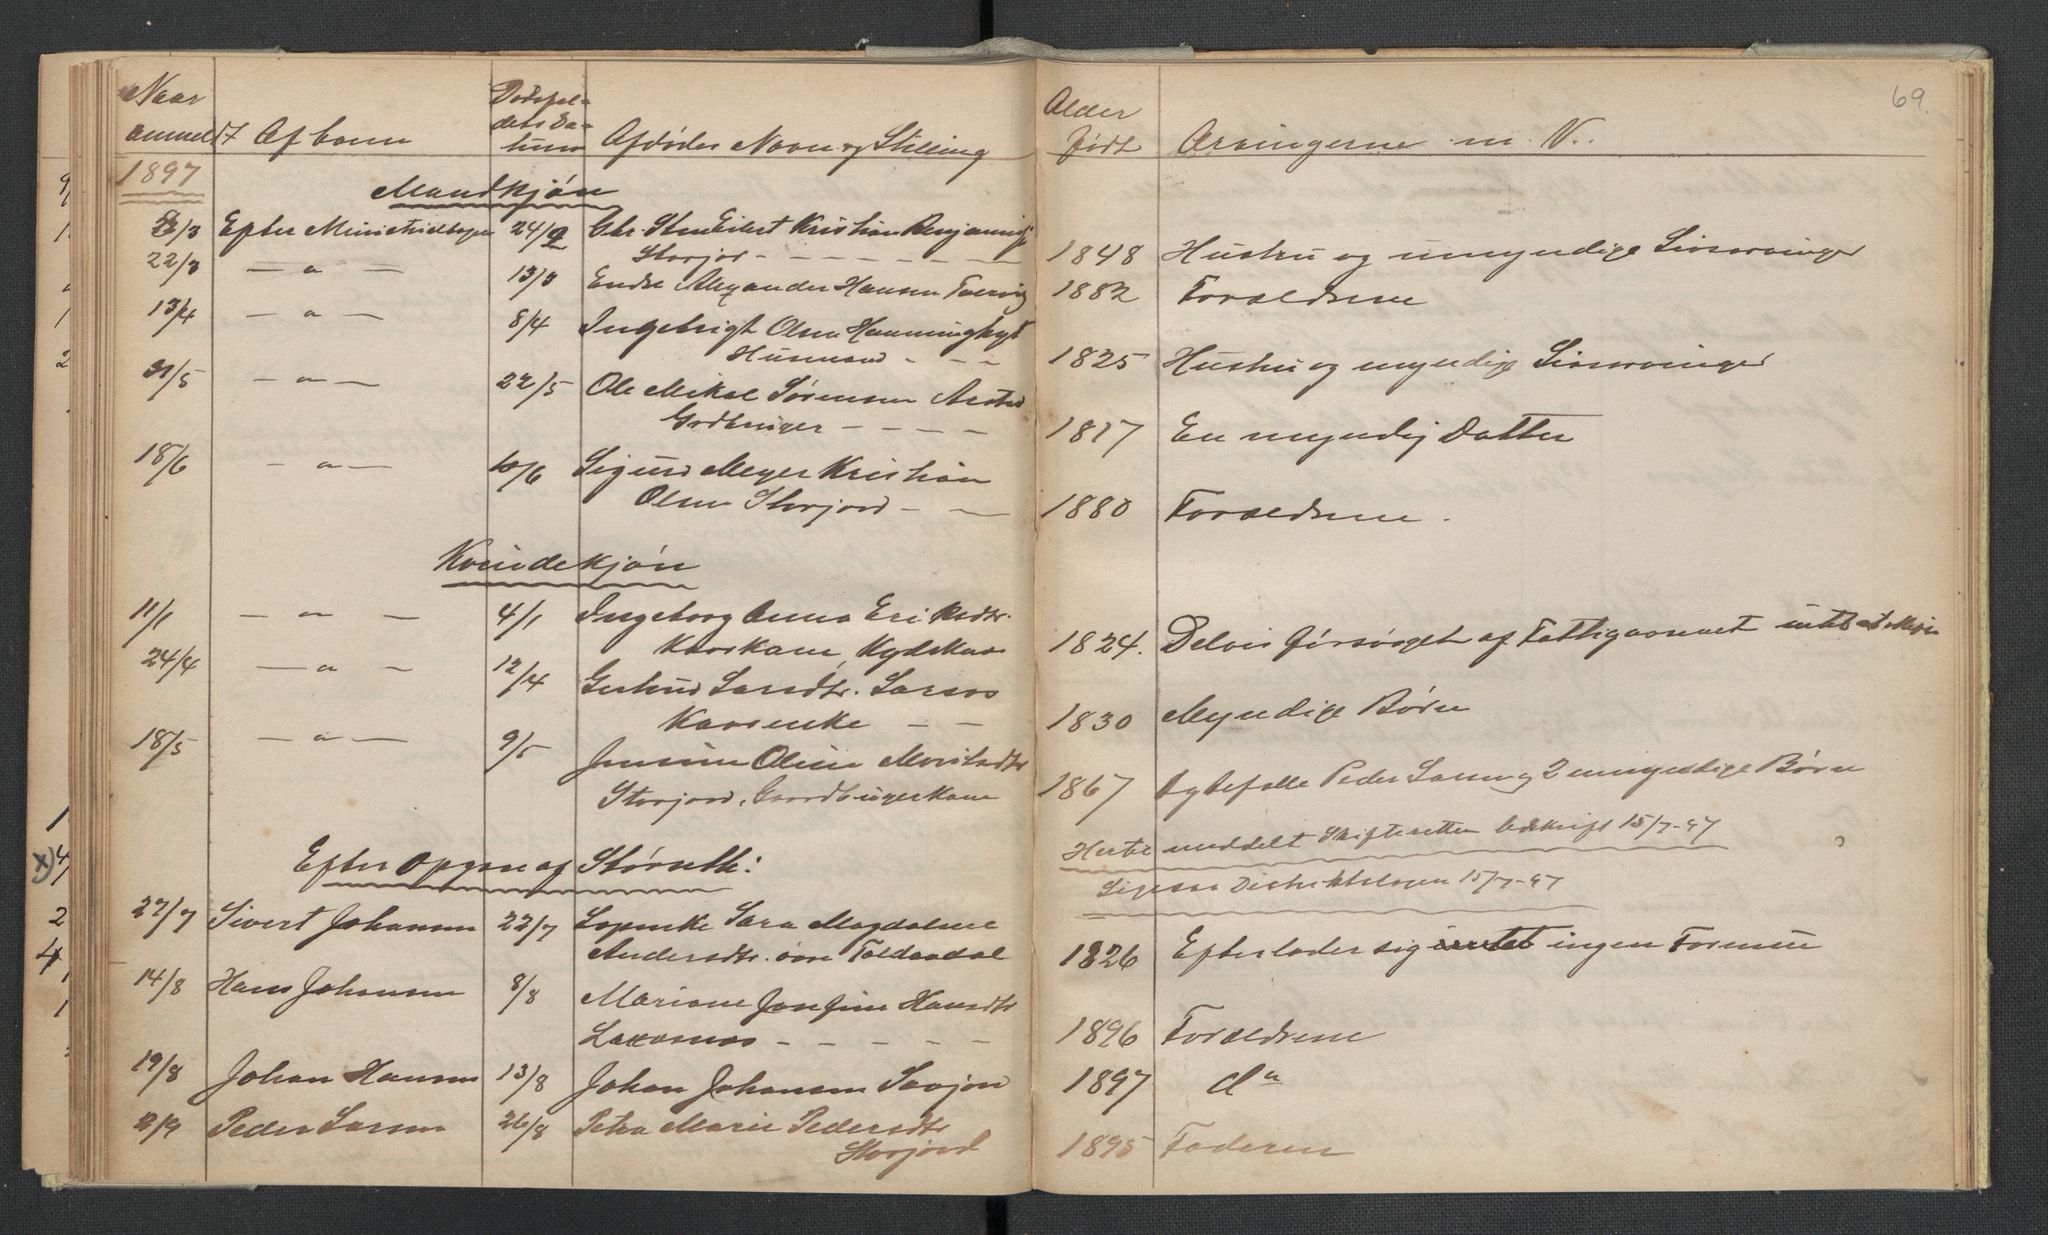 69.
Naar anmeldt Af hvem Dødsfaldets Datum Afdødes Navn og Stilling Alder Født Arvingerne m. V.
1897
Mandkjøn
/3 Efter Ministrialbogen 24/2 Eilert Kristian Benjaminsen
Storjor - - - - - - - 1848 Hustru og umyndige Livsarvinger
22/3 — " — 13/3 Endre Alexander Hansen 1882 Forældrene
13/4 — " — 8/4 Ingebrigt Olsen
Husmand - - - 1825 Hustru og myndige Livsarvinger
31/5 — " — 22/5 Ole Mikal Sørensen
Gdbruger - - - - 1817 En myndig Datter
18/6 — " — 10/6 Sigurd Meyer Kristian
Olsen Storjord - - 1880 Forældrene.
Kvindekjøn
11/1 — " — 4/1 Ingeborg Anna Eriksdtr.
Kaarkone 1824. Delvis forsørget af Fattigvæsenet
24/4 — " — 12/4 Gertrud Larsdtr.
Kaarenke - - 1830 Myndige Børn
18/5 — " — 9/5 Jensine Oline
Storjord, Gaardbrugerkone 1867 Ægtefælle Peder Larsen og 2 umyndige Børn
meddelt Skifteretten Udskrift 15/7-97
Efter Opgave af Sørvutti:
15/7-97
27/7 Sivert Johansen 22/7 Lapenke Sara Magdalene
Andersdtr. 1826 Efterlader sig intet ingen Formue
14/8 Hans Johansen 8/8 Mariane Josefine Hansdtr
- - - - - 1896 Forældrene
19/8 Johan Hansen 13/8 Johan Johansen 1897 do
2/9 Peder Larsen 26/8 Petra Marie Pedersdtr
Storjord 1895 Faderen